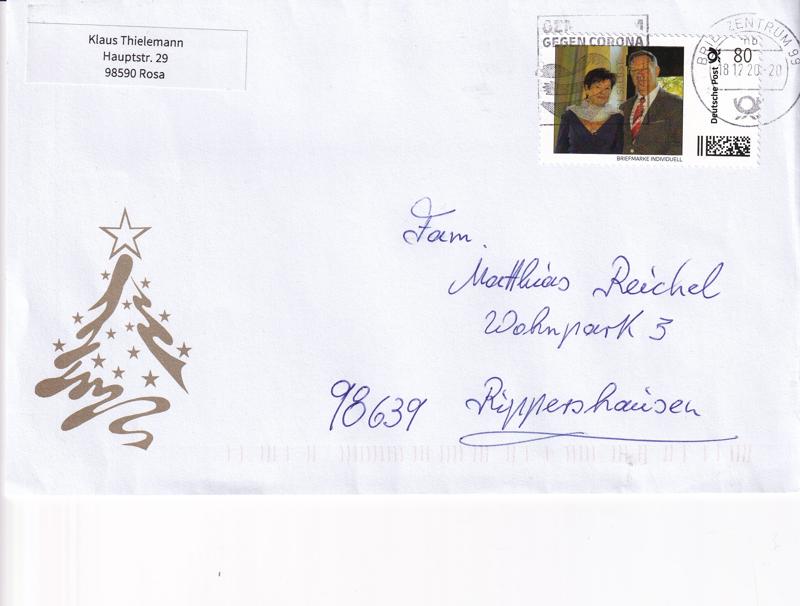 Klaus Thielemann
Hauptstr. 29
98590 Rosa
GEGEN CORONA
BRIEFZENTRUM 99
18.12.20-20
80
Deutsche Post
BRIEFMARKE INDIVIDUELL
Fam.
Matthias Reichel
Wohnpark 3
98639 Rippershausen